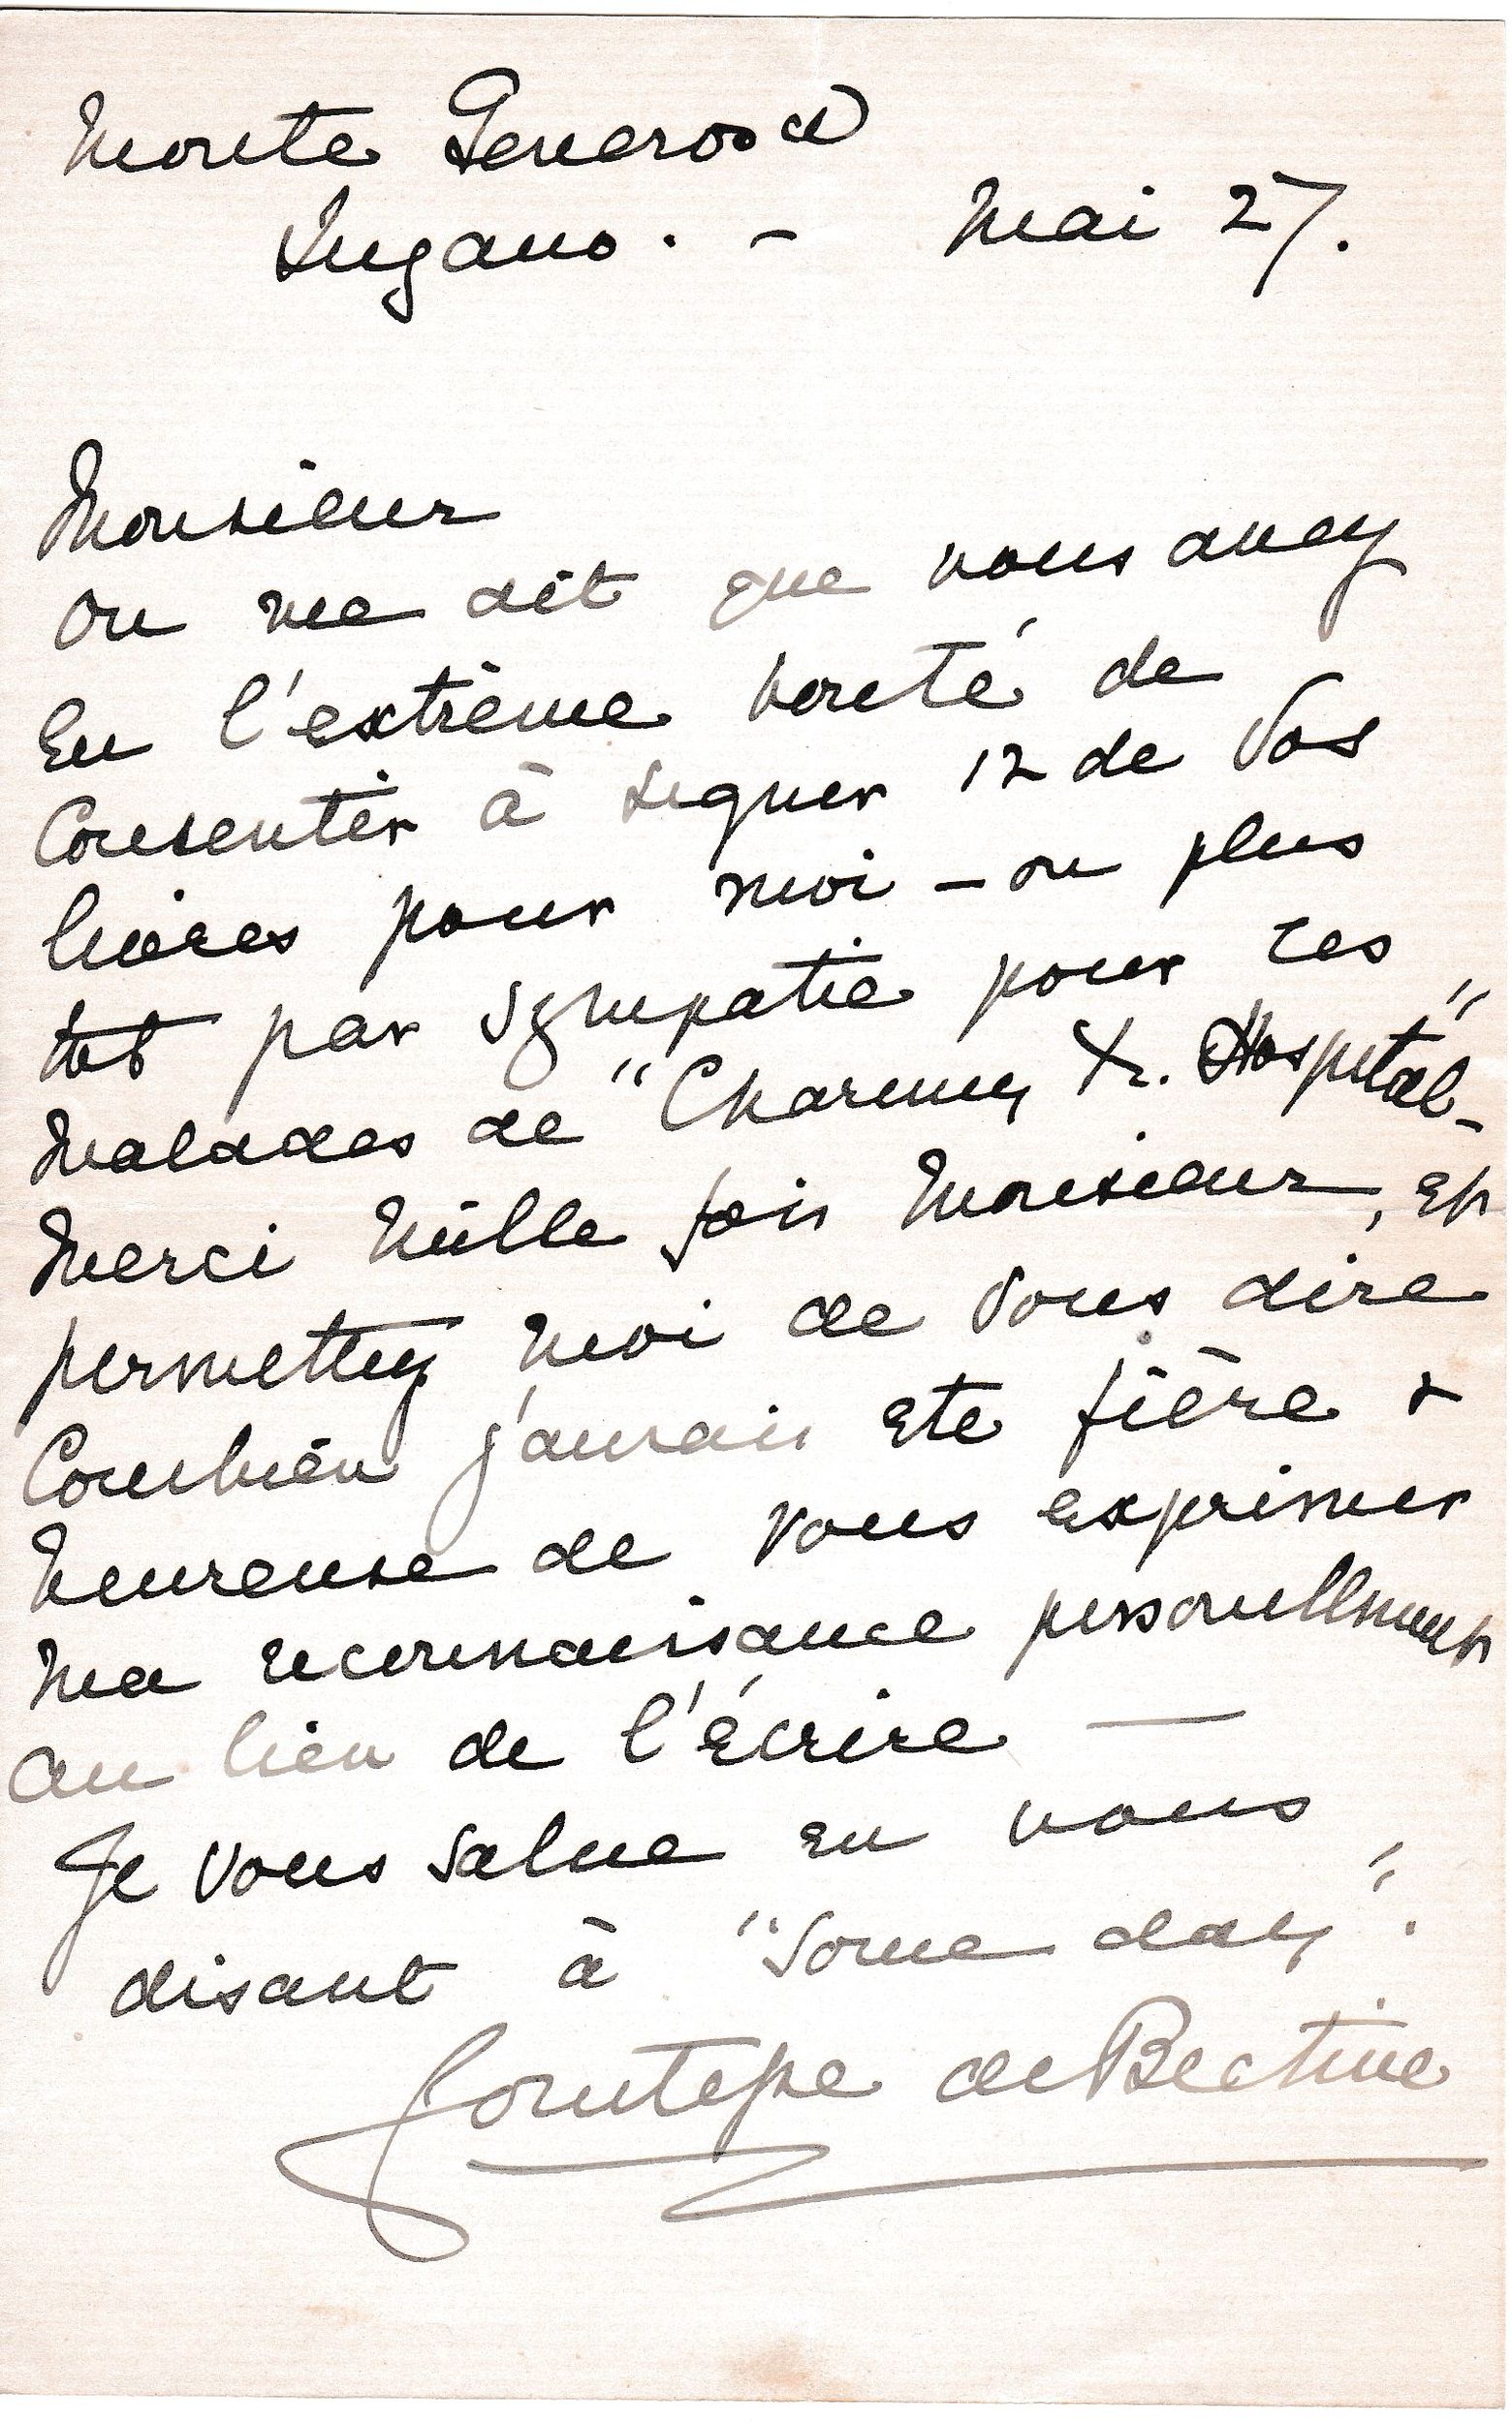 Monte Generoso
Lugano. - Mai 27.
Monsieur
On me dit que vous avez
eu l'extrême bonté de
consentir à signer 12 de vos
livres pour moi - ou plus
tot par sympatie pour les
malades de "Charing X. Hospital-"
Merci mille fois Monsieur, et
permettez moi de vous dire
combien j'aurais ete fière &
heureuse de vous exprimer
ma reconnaissance personellment
au lieu de l'écrire —
Je vous salue en vous
disant à "some day".
de